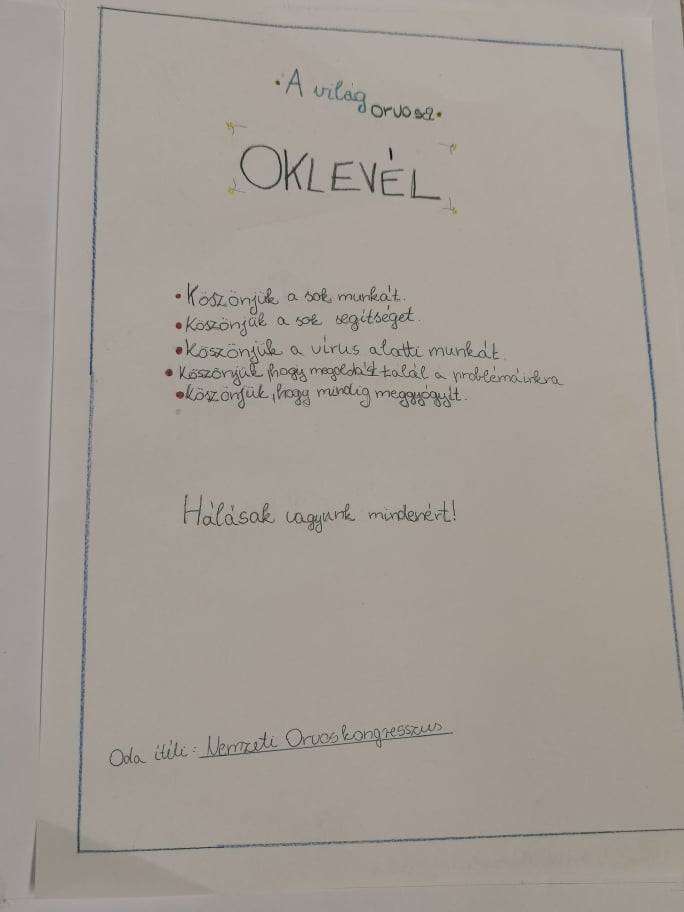 • A világ orvosa •
OKLEVÉL
• Köszönjük a sok munkát.
• Köszönjük a sok segítséget.
• Köszönjük a vírus alatti munkát.
• Köszönjük, hogy megoldást talál a problémáinkra
• Köszönjük, hogy mindig meggyógyít.
Hálásak vagyunk mindenért!
Oda itili: Nemzeti Orvoskongresszus